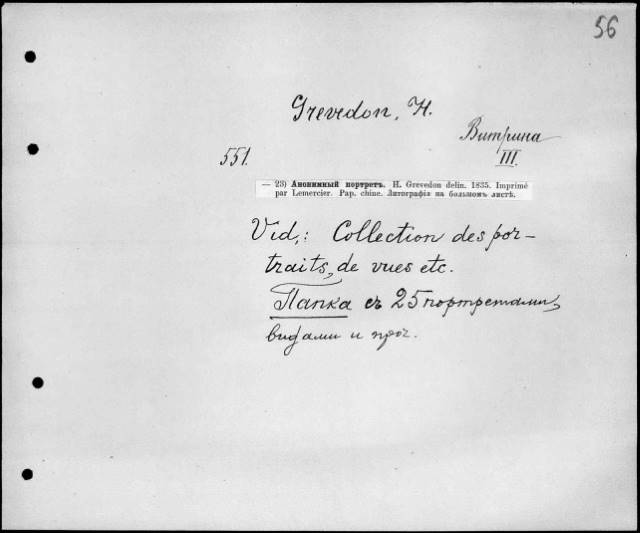 56
Grevedon, H.
Витрина
III.
551.
— 23) Анонимный портретъ. H. Grevedon delin. 1835. Imprimé
par Lemercier. Pap. chine. Литографія на большомъ листѣ.
Vid,: Collection des por-
traits, de vues etc.
Папка съ 25 портретами,
видами и проч.